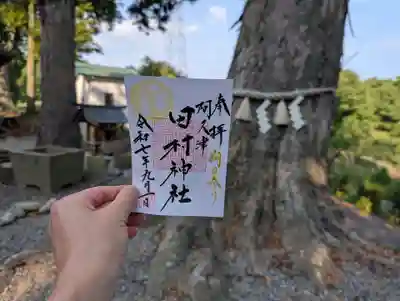 奉拝
阿久津
田村神社
令和七年九月一日